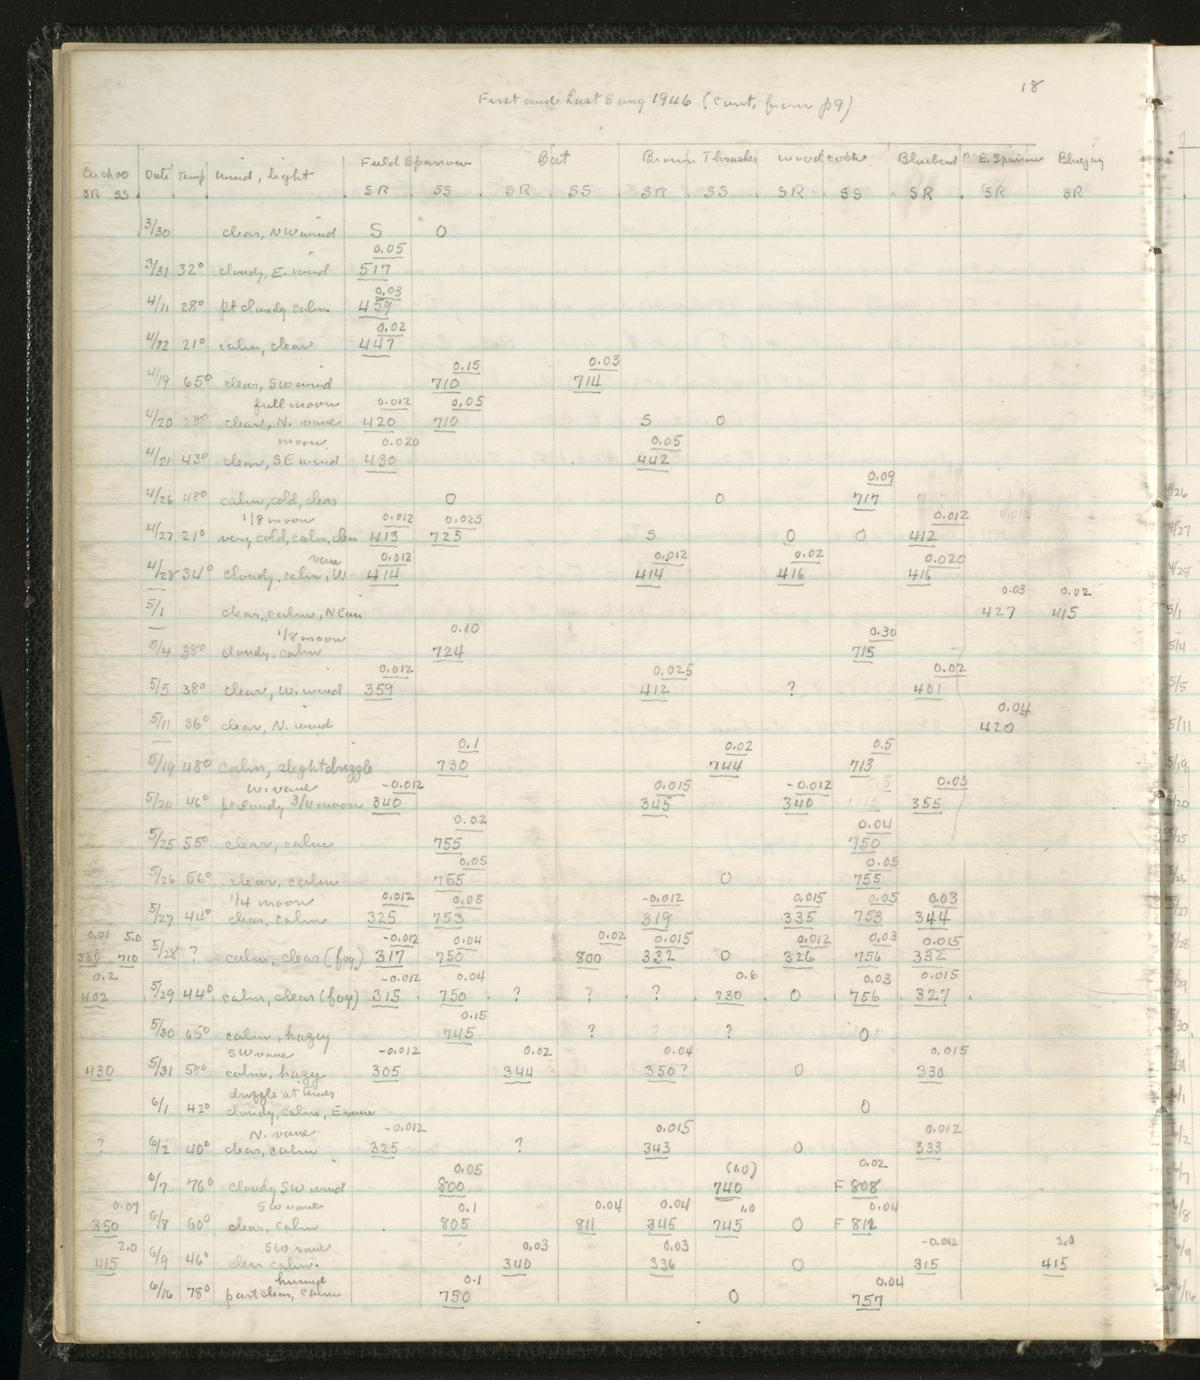 18
First and Last Song 1946 (cont. from p9)
Cuckoo Date Temp Wind, light Field Sparrow Cat Brown Thrasher Woodcock Bluebird E. Sparrow Bluejay
SR SS SR SS SR SS SR SS SR SS SR SR SR
3/30 clear, NW wind S O
0.05
3/31 32° cloudy, E. wind 517
0.03
4/11 28° pt cloudy calm 459
0.02
4/12 21° calm, clear 447
0.15 0.03
4/19 65° clear, SW wind 710 714
full moon 0.012 0.05
4/20 28° clear, N. vane 420 710 S O
moon 0.020 0.05
4/21 43° clear, SE wind 430 442
0.09
4/26 48° calm, cold, clear O O 717
1/8 moon 0.012 0.025 0.012
4/27 21° very cold, calm, clear 413 725 S O O 412
vane 0.012 0.012 0.02 0.020
4/28 34° cloudy, calm, W 414 414 416 416
0.03 0.02
5/1 clear, calm, NE air 427 415
1/8 moon 0.10 0.30
5/4 38° cloudy, calm 724 715
0.012 0.025 0.02
5/5 38° clear, W. wind 359 412 ? 401
0.04
5/11 36° clear, N. wind 420
0.1 0.02 0.5
5/19 48° calm, slight drizzle 730 744 713
W. vane -0.012 0.015 -0.012 0.03
5/20 46° pt cloudy 3/4 moon 340 345 340 355
0.02 0.04
5/25 55° clear, calm 755 750
0.05 0.05
5/26 56° clear, calm 755 O 755
1/4 moon 0.012 0.05 -0.012 0.015 0.05 0.03
5/27 44° clear, calm 325 753 319 335 753 344
0.01 5.0 -0.012 0.04 0.02 0.015 0.012 0.03 0.015
330 710 5/28 ? calm, clear (fog) 317 750 800 332 O 326 756 332
0.2 -0.012 0.04 0.6 0.03 0.015
402 5/29 44° calm, clear (fog) 315 750 ? ? ? 730 O 756 327
0.15
5/30 65° calm, hazy 745 ? ? ? O
SW vane -0.012 0.02 0.04 0.015
430 5/31 58° calm, hazy 305 344 350? O 330
drizzle at times
6/1 42° cloudy, calm, E vane O
N. vane -0.012 0.015 0.012
? 6/2 40° clear, calm 325 ? 343 O 333
0.05 (1.0) 0.02
6/7 76° cloudy SW wind 800 740 F 808
0.07 SW vane 0.1 0.04 0.04 1.0 0.04
350 6/8 60° clear, calm 805 811 345 745 O F 812
2.0 SW vane 0.03 0.03 -0.012 2.0
415 6/9 46° clear calm. 340 336 O 315 415
humid 0.1 0.04
6/16 78° part clear, calm 750 O 757
4/26
4/27
4/28
5/1
5/4
5/5
5/11